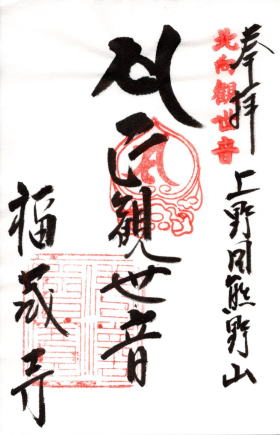 奉拝
北向觀世音
上野国熊野山
正觀世音
福蔵寺